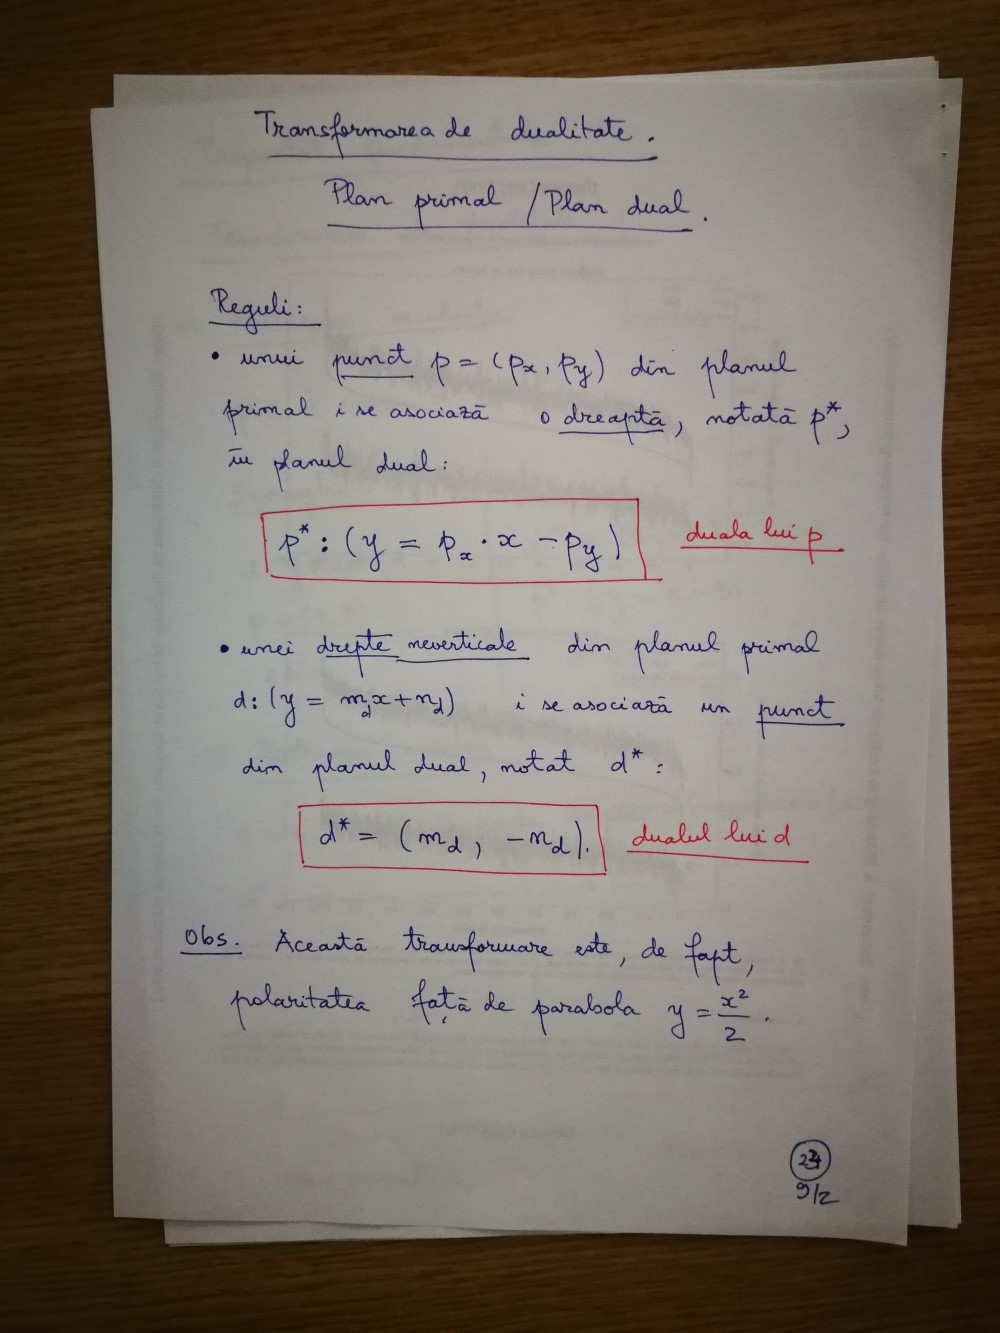 Transformarea de dualitate.
Plan primal / Plan dual.
Reguli:
• unui punct p = (px, py) din planul
primal i se asociază o dreaptă, notată p*,
în planul dual:
p* : (y = px · x - py) duala lui p
• unei drepte neverticale din planul primal
d: (y = mdx + nd) i se asociază un punct
din planul dual, notat d* :
d* = (md, -nd). dualul lui d
Obs. Această transformare este, de fapt,
polaritatea față de parabola y = x²/2 .
9/2